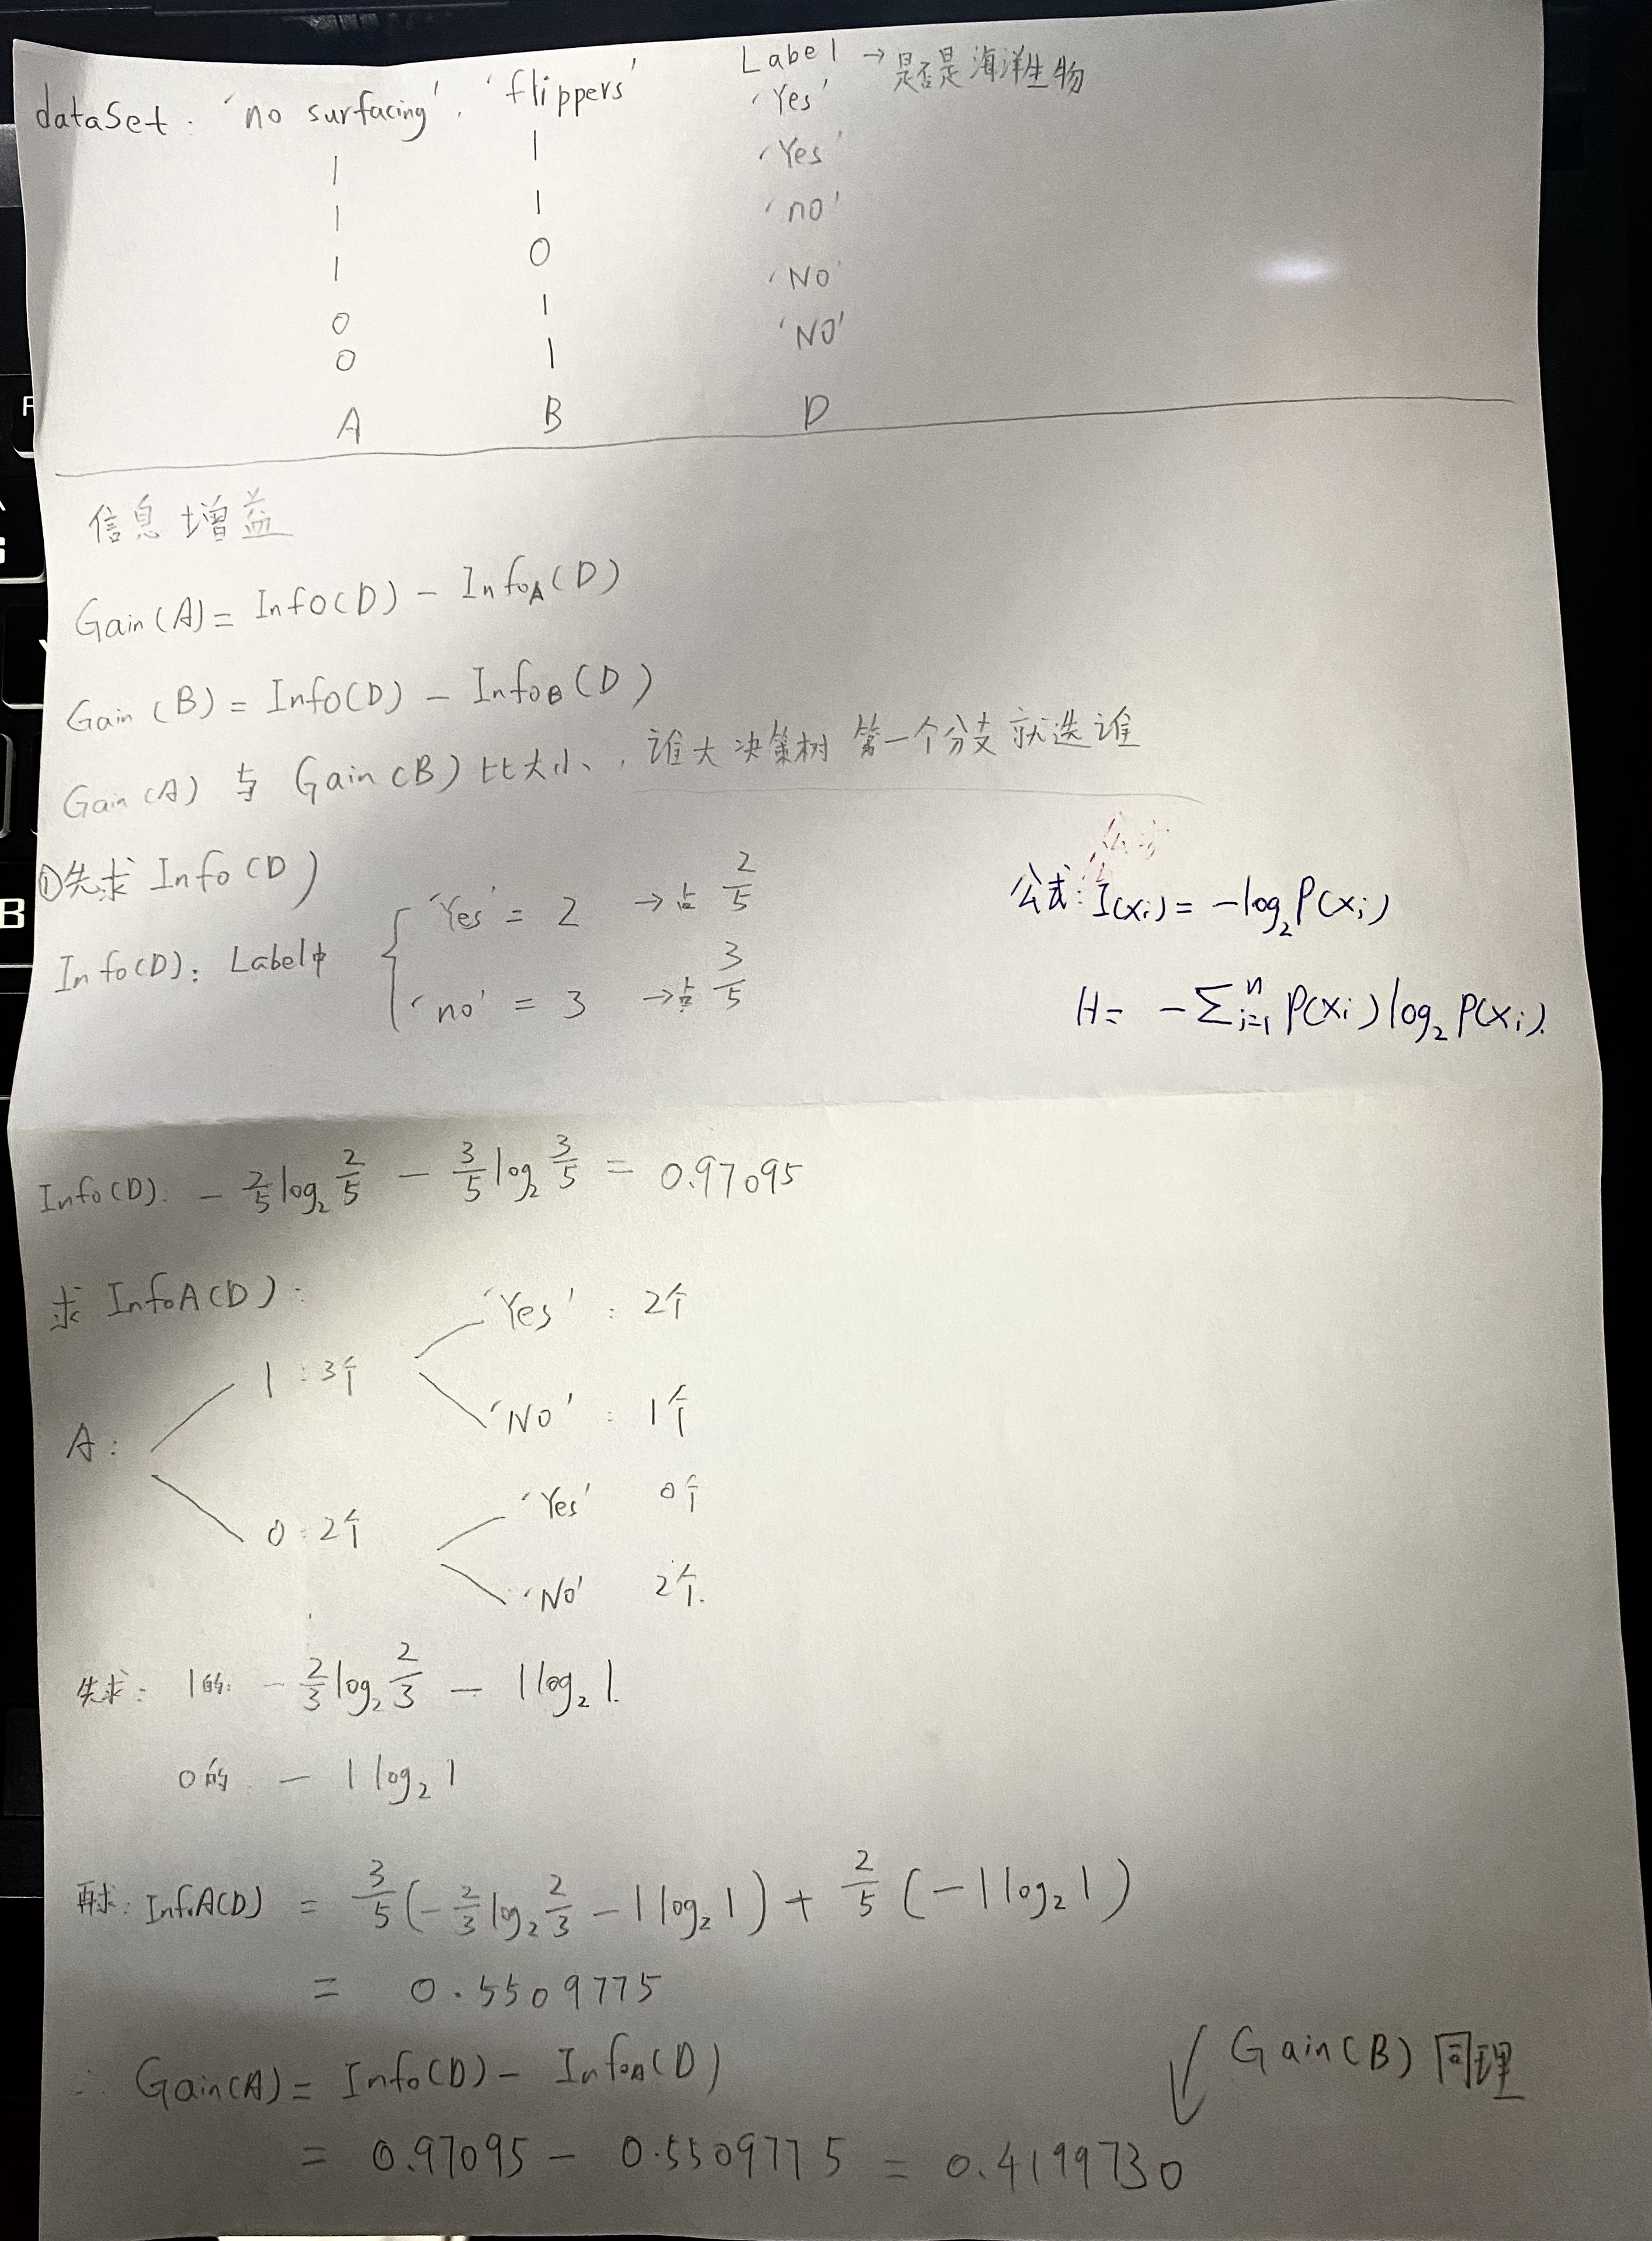 Label → 是否是海洋生物
dataSet: 'no surfacing', 'flippers' 'Yes'
1 1 'Yes'
1 1 'no'
1 0 'No'
0 1 'NO'
0 1
A B D
信息增益
Gain(A) = Info(D) - InfoA(D)
Gain(B) = Info(D) - InfoB(D)
Gain(A) 与 Gain(B) 比大小, 谁大决策树第一个分支就选谁
①先求 Info(D)
Info(D): Label中 { 'Yes' = 2 → 占 2/5
'no' = 3 → 占 3/5
公式: I(xi) = -log₂P(xi)
H = -∑ⁿᵢ₌₁ P(xi) log₂ P(xi).
Info(D). - 2/5 log₂ 2/5 - 3/5 log₂ 3/5 = 0.97095
求 InfoA(D):
'Yes' : 2个
1 : 3个
'No' : 1个
A:
'Yes' 0个
0 : 2个
'No' 2个.
先求: 1的: - 2/3 log₂ 2/3 - 1 log₂ 1.
0的 - 1 log₂ 1
再求: InfoA(D) = 3/5 (- 2/3 log₂ 2/3 - 1 log₂ 1) + 2/5 (-1 log₂ 1)
= 0.5509775
∴ Gain(A) = Info(D) - InfoA(D)
Gain(B) 同理
= 0.97095 - 0.5509775 = 0.4199730